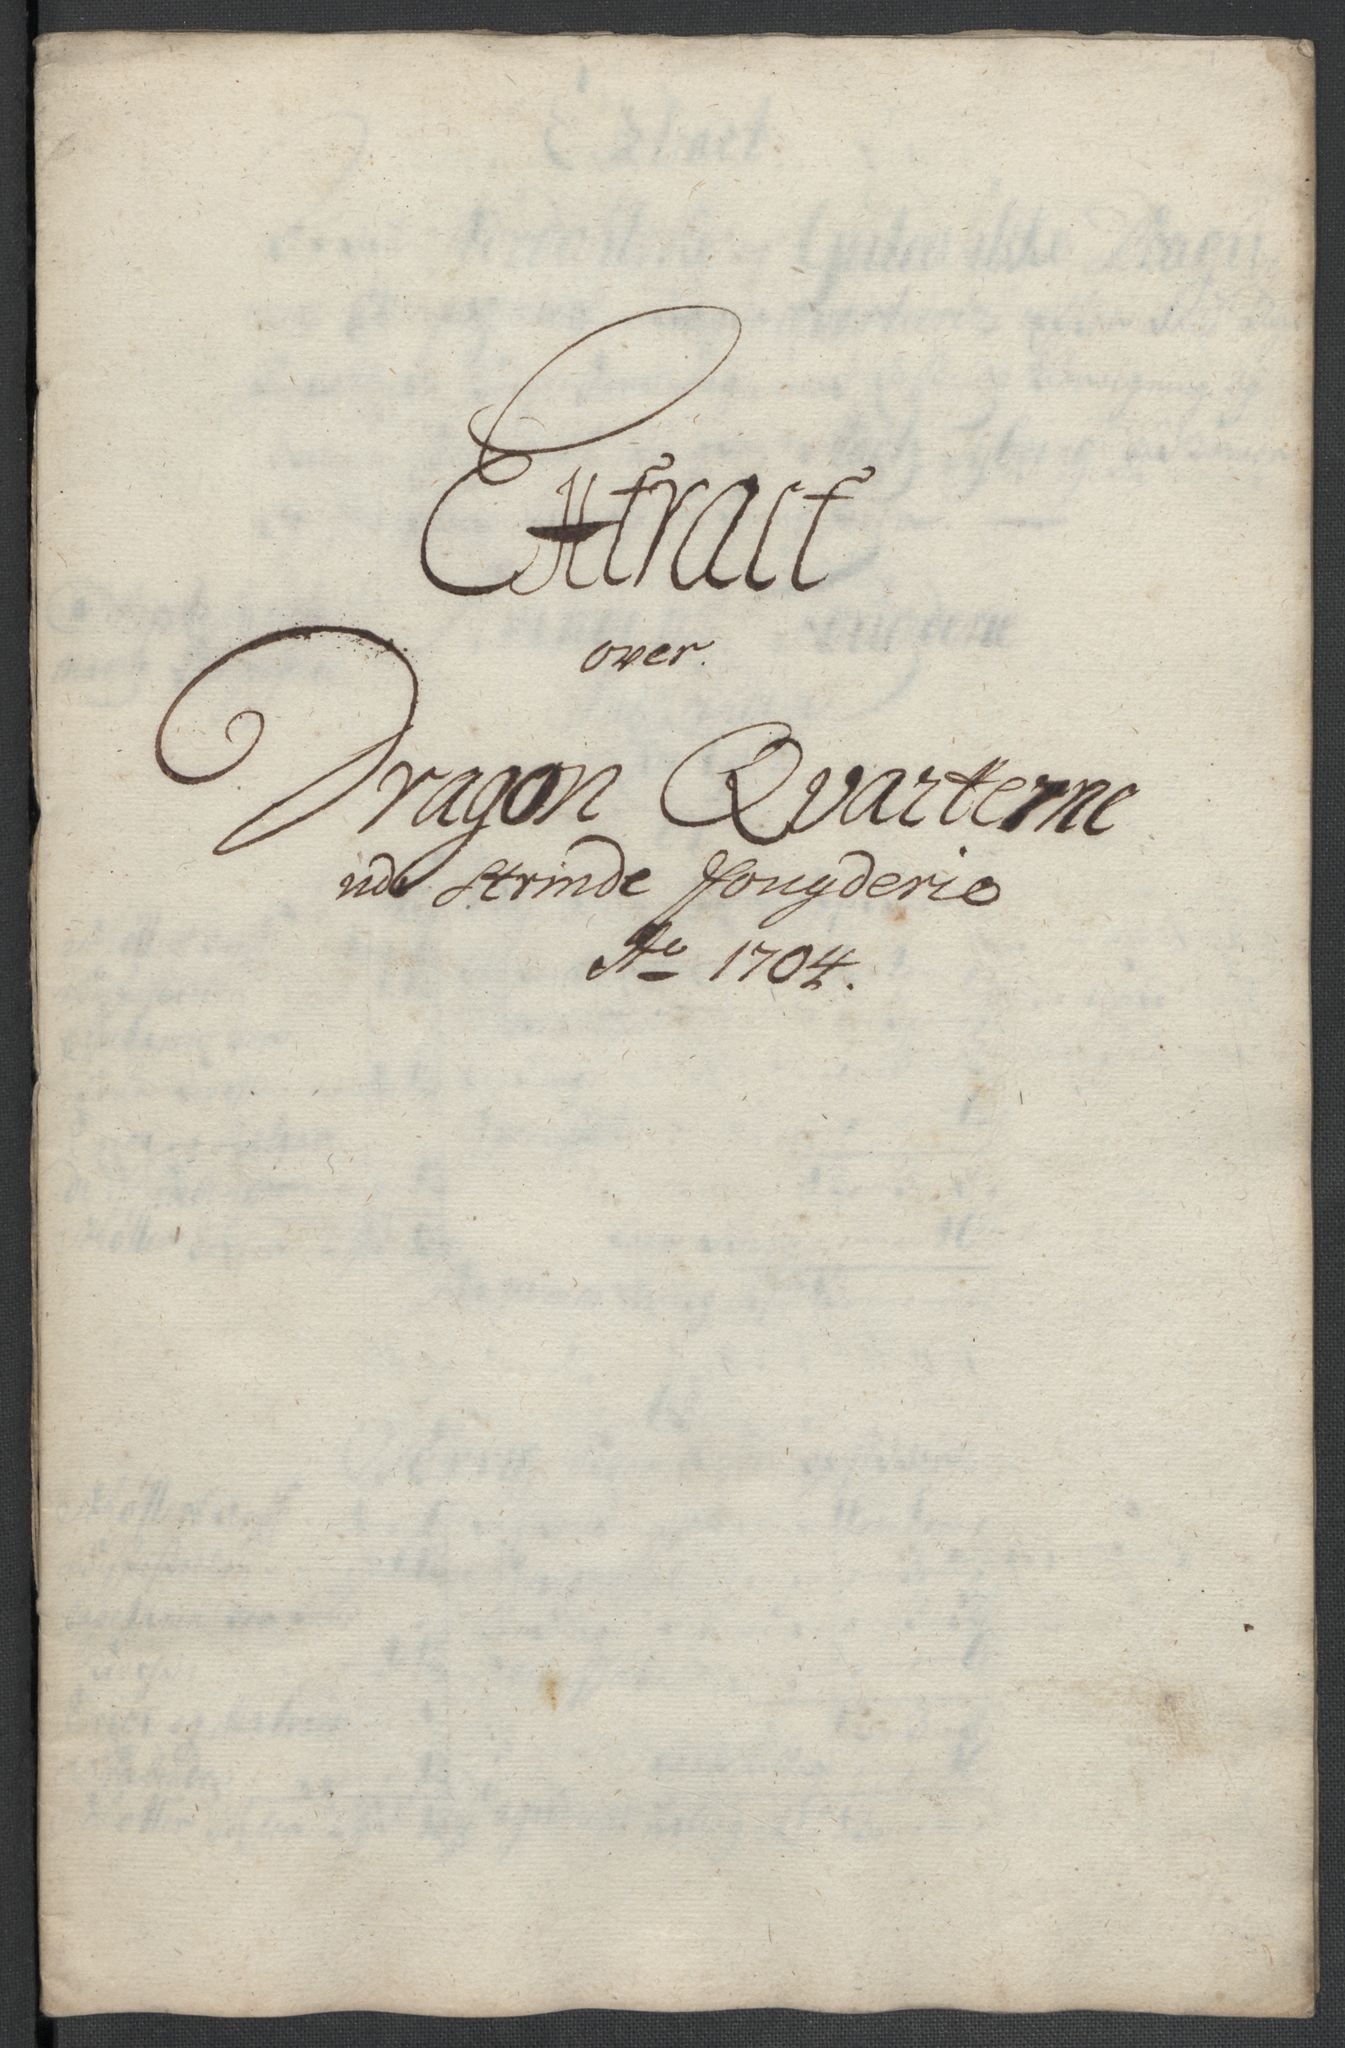 Extract
over
Dragon Qvarterne
udi Strinde Fougderie
Ao 1704.